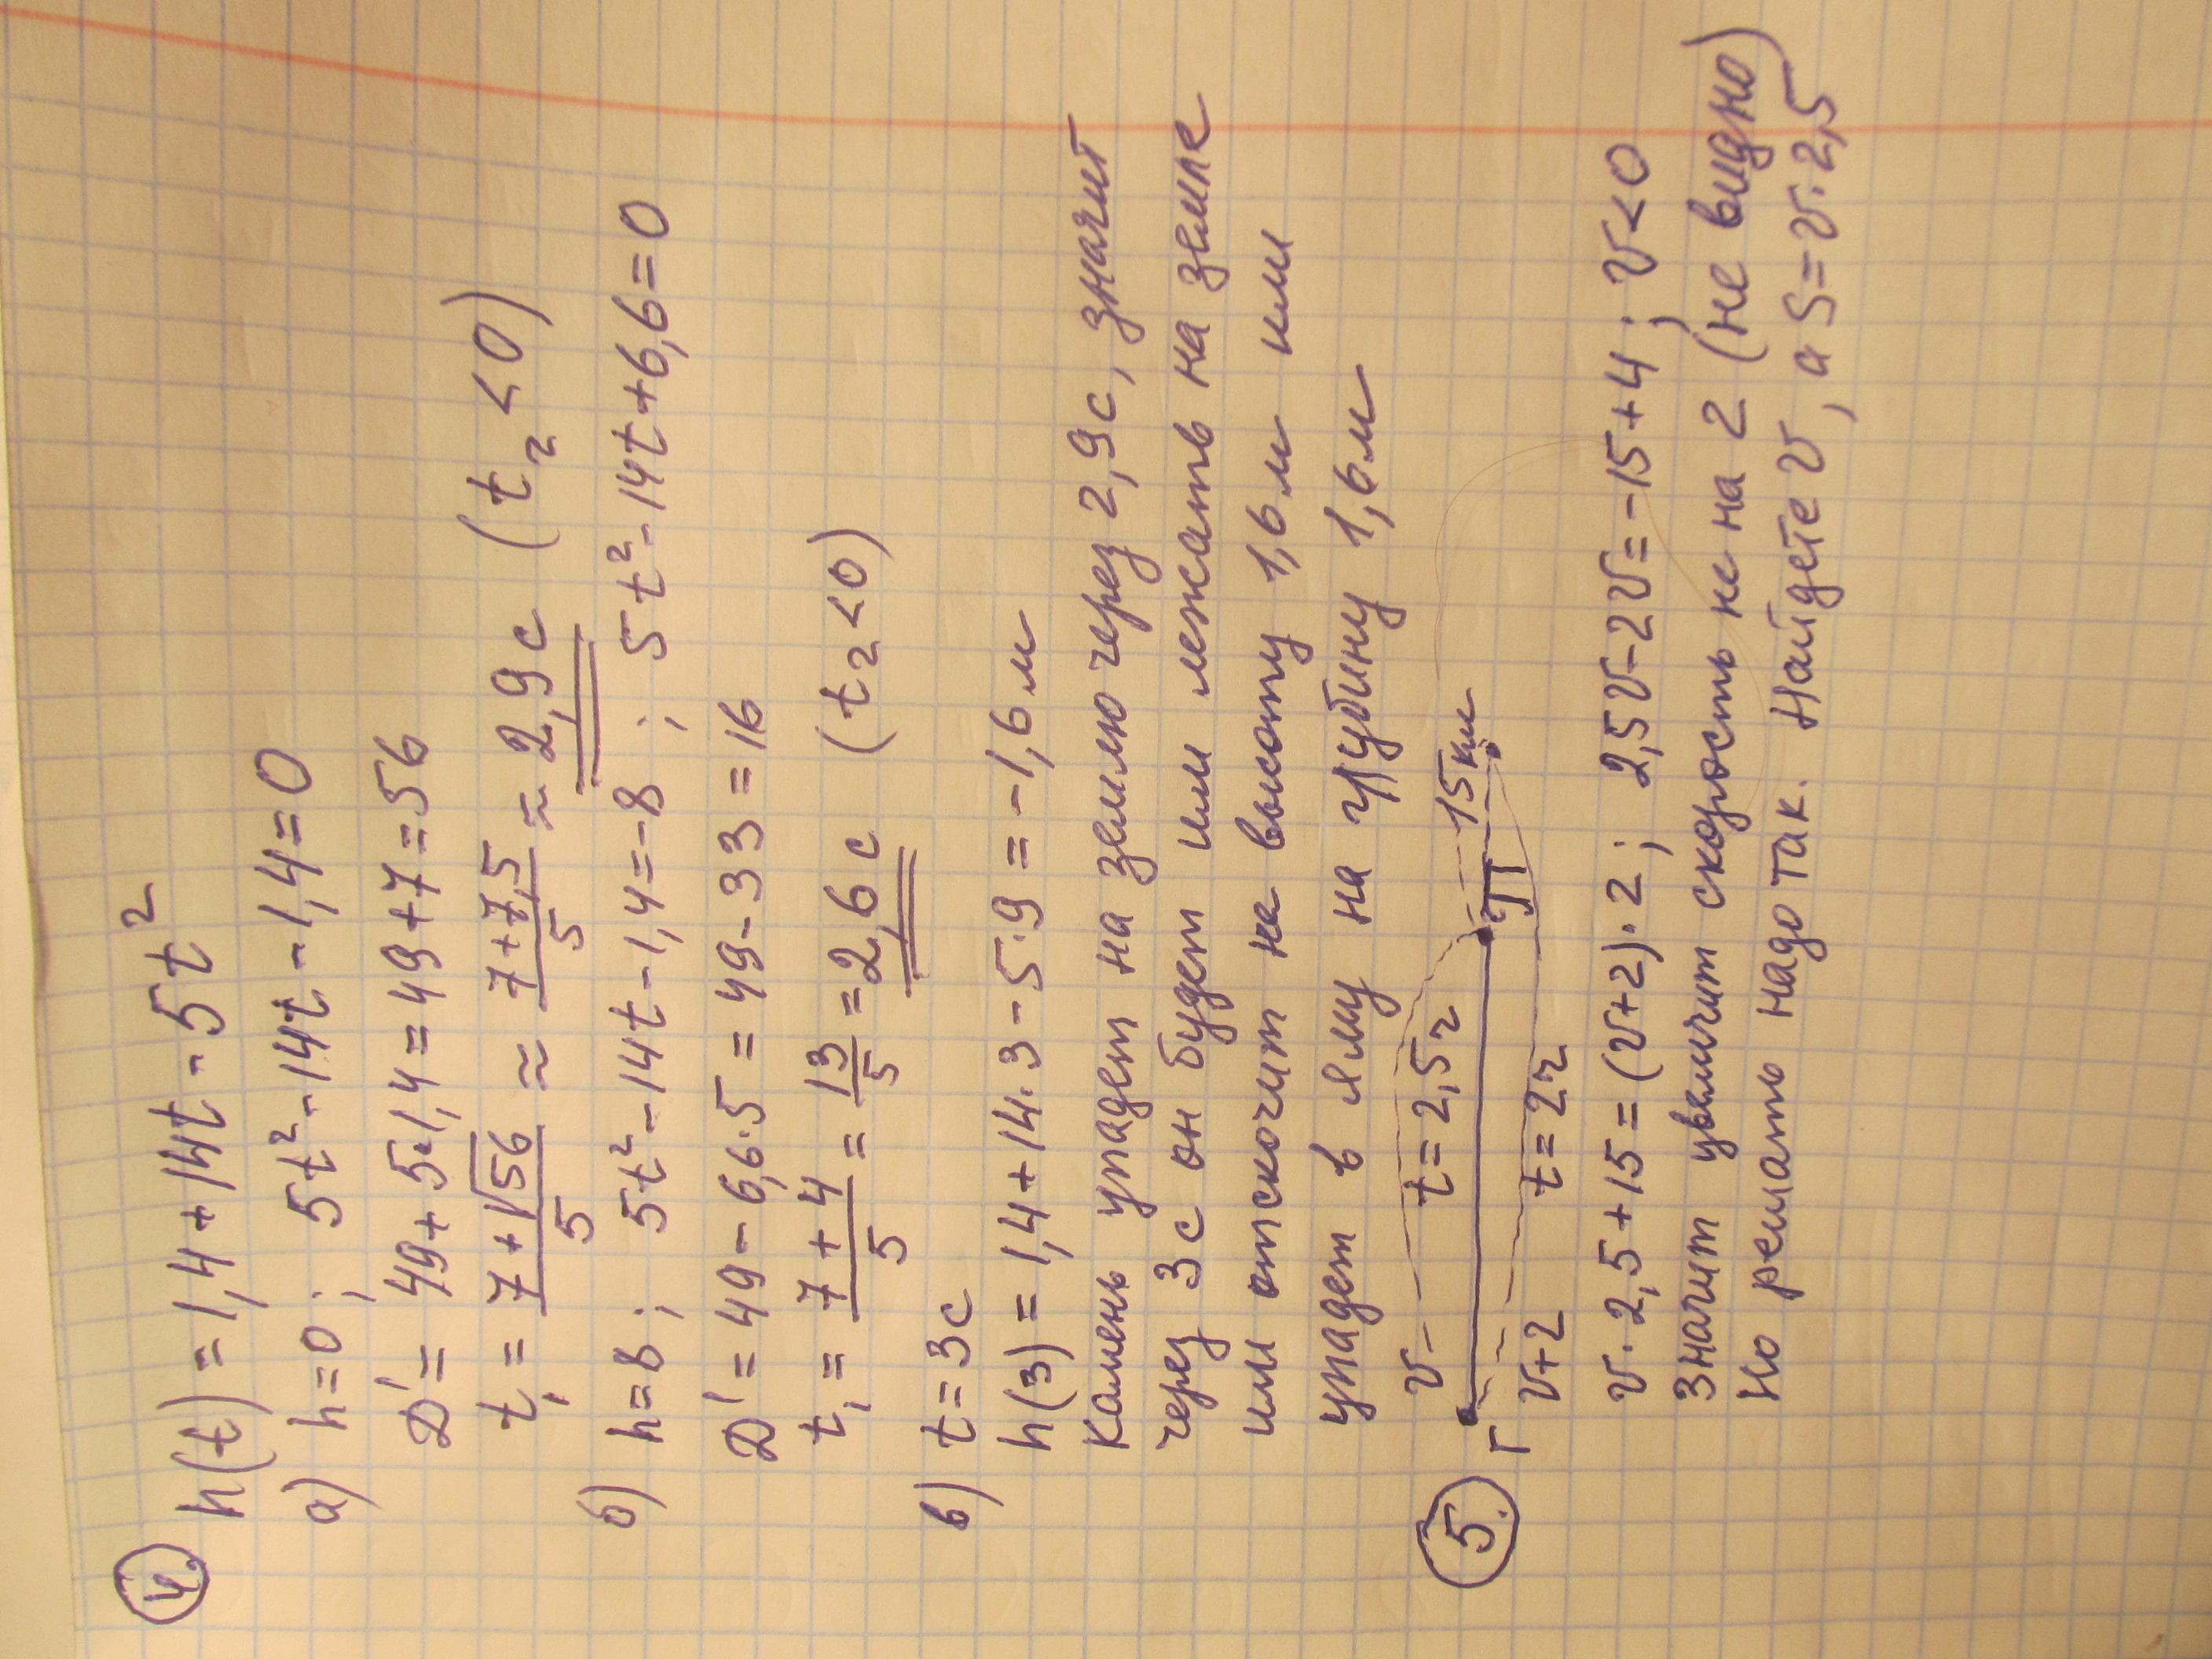 4. h(t) = 1,4 + 14t - 5t²
а) h=0; 5t² - 14t - 1,4 = 0
D' = 49 + 5·1,4 = 49 + 7 = 56
t₁ = (7 + √56)/5 ≈ (7 + 7,5)/5 ≈ 2,9 с (t₂ < 0)
б) h = 8; 5t² - 14t - 1,4 = -8; 5t² - 14t + 6,6 = 0
D' = 49 - 6,6·5 = 49 - 33 = 16
t₁ = (7 + 4)/5 = 13/5 = 2,6 с (t₂ < 0)
в) t = 3с
h(3) = 1,4 + 14·3 - 5·9 = -1,6 м
Камень упадет на землю через 2,9 с, значит
через 3 с он будет или лежать на земле
или отскочит на высоту 1,6 м или
упадет в яму на глубину 1,6 м
5. v t = 2,5 ч 15 км
Г П
v+2 t = 2 ч
v·2,5 + 15 = (v+2)·2; 2,5v - 2v = -15 + 4; v < 0
Значит увеличит скорость не на 2 (не видно)
Но решать надо так. Найдете v, а S = v·2,5